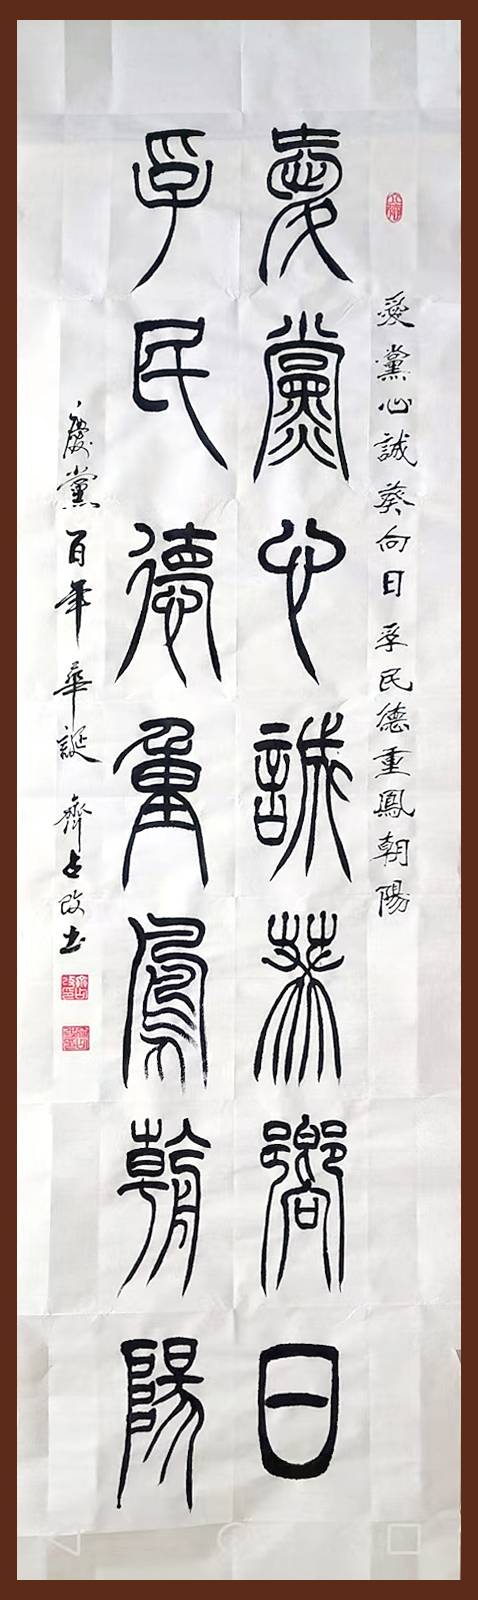 愛黨心誠葵向日 孚民德重鳳朝陽
愛黨心誠葵嚮日
孚民德重鳳朝陽
慶黨百年華誕 齊占改书